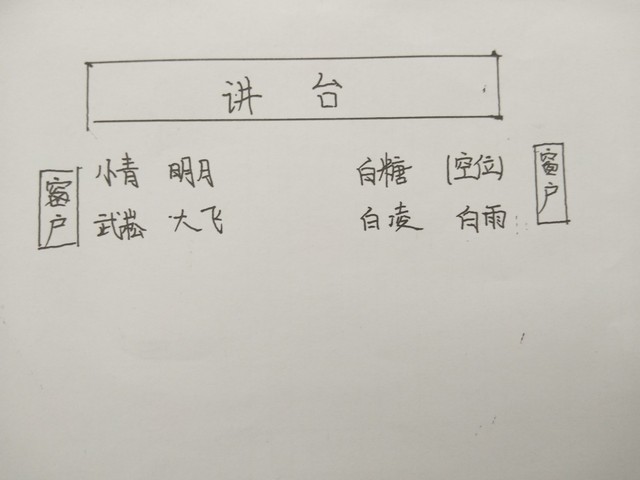 讲台
小青 明月 白糖 (空位)
窗户 窗户
武崧 大飞 白凌 白雨